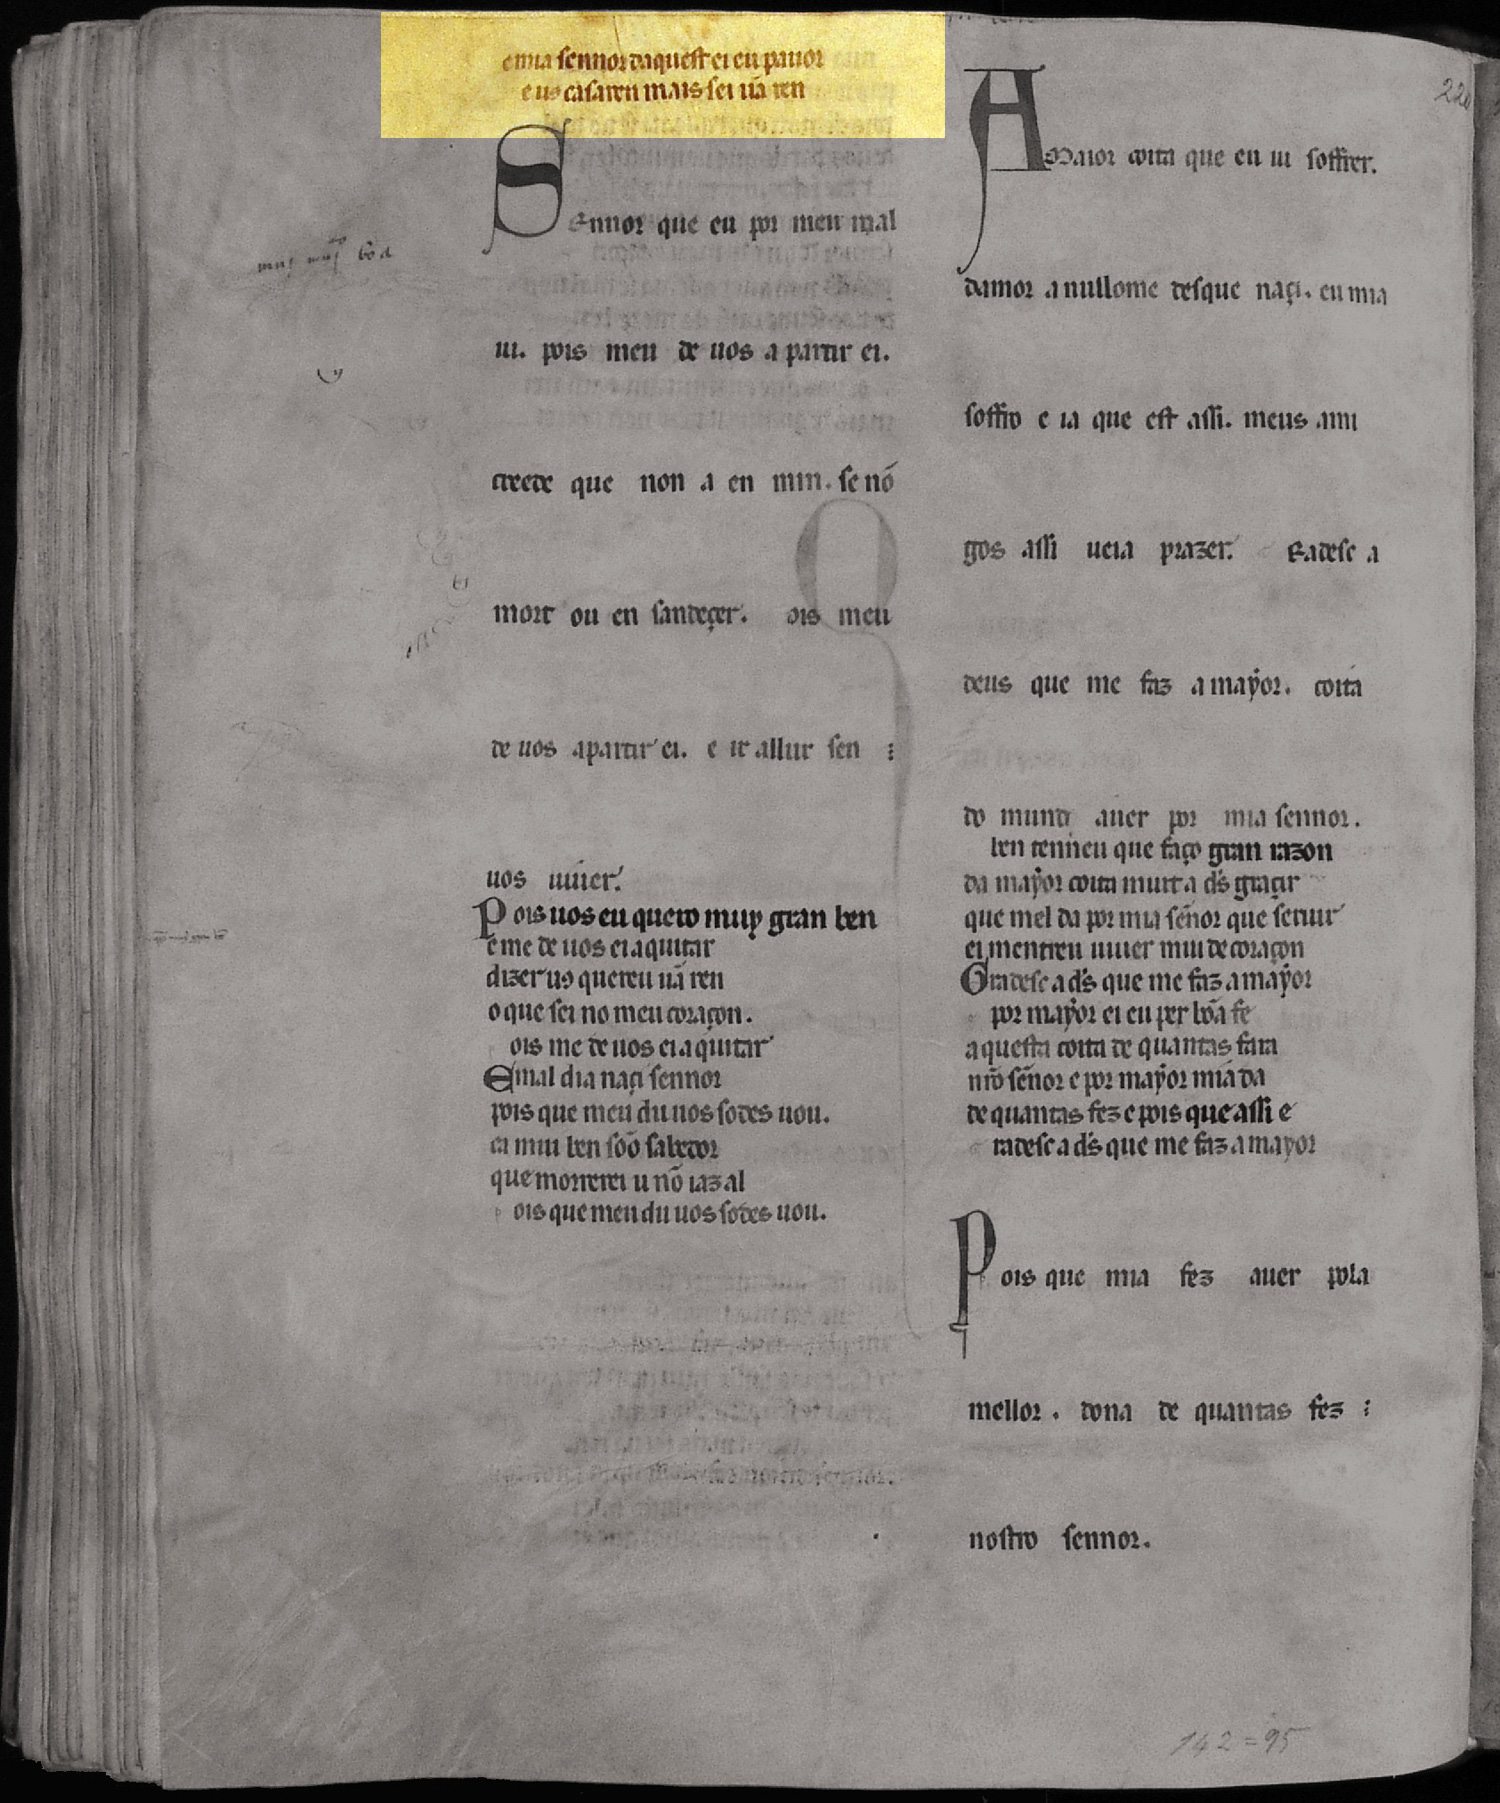 e mia sennor daquest ei eu pauor
e us casaren mais sei ũa ren
Sennor que eu por meu mal
ui. pois meu de uos a partir ei.
creede que non a en min. se nõ
mort ou en sandeçer. ois meu
de uos apartir ei. e ir allur sen :
uos uiuer.
Pois uos eu quero muy gran ben
e me de uos ei a quitar
dizer uꝯ quereu ũa ren
o que sei no meu coraçon.
ois me de uos ei a quitar
E mal dia naçi sennor
pois que meu du uos sodes uou.
ca mui ben sõo sabedor
que morrerei u nõ iaz al
ois que meu du uos sodes uou.
muj muj boa
220
A Maior coita que eu ui soffrer.
damor a nullome desque naçi. eu mia
soffro e ia que est assi. meus ami
gos assi ueia prazer. Gradesc a
deus que me faz a mayor. coita
do mund auer por mia sennor.
ben tenneu que faço gran razon
da mayor coita muit a d's graçir
que mel da por mia señor que seruir
ei mentreu uiuer mui de coraçon
Gradesc a d's que me faz a mayor
por mayor ei eu per bõa fe
aquesta coita de quantas fara
nr̃o señor e por mayor mia da
de quantas fez e pois que assi e
radesc a d's que me faz a mayor
Pois que mia fez auer pola
mellor. dona de quantas fez :
nostro sennor.
142=95